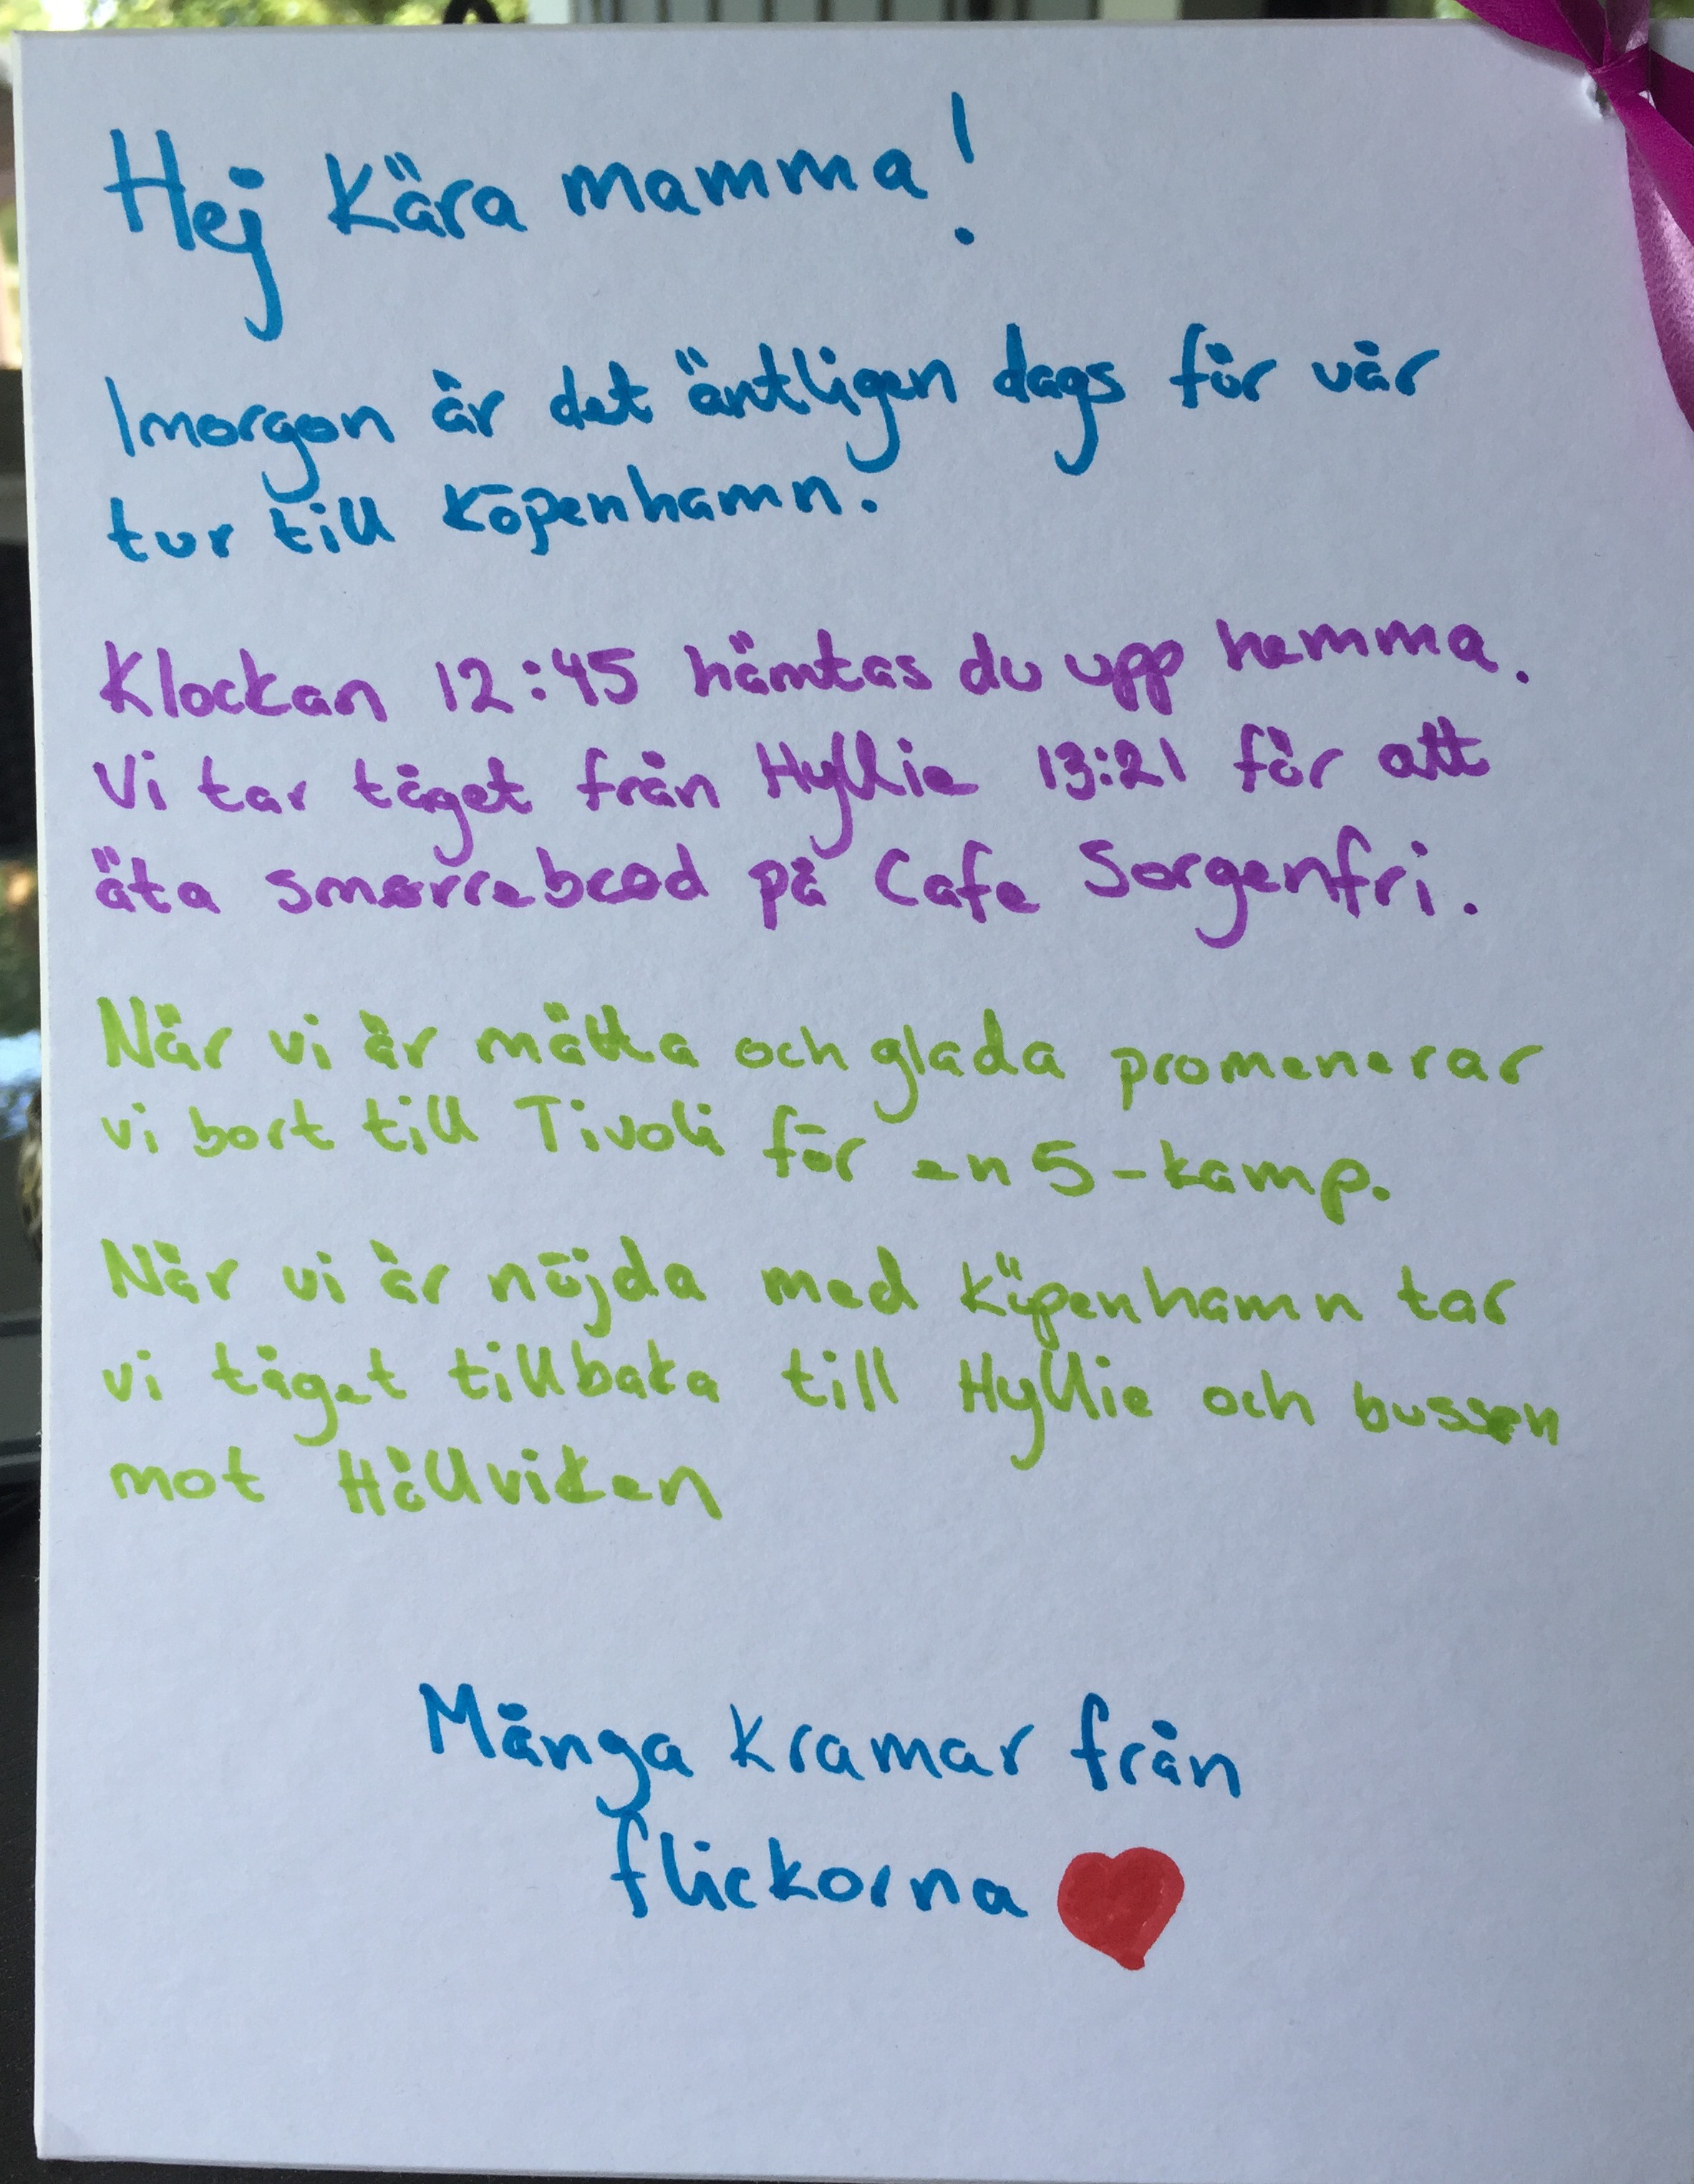 Hej Kära mamma!
Imorgon är det äntligen dags för vår
tur till Köpenhamn.
Klockan 12:45 hämtas du upp hemma.
Vi tar tåget från Hyllie 13:21 för att
äta smørrebrød på Cafe Sorgenfri.
När vi är mätta och glada promenerar
vi bort till Tivoli för en 5-kamp.
När vi är nöjda med Köpenhamn tar
vi tåget tillbaka till Hyllie och bussen
mot Höllviken
Många kramar från
flickorna